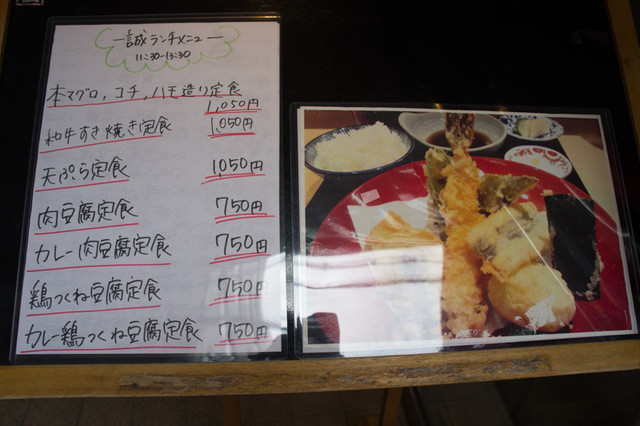 ―誠ランチメニュ―
11:30~13:30
本マグロ,コチ,ハモ造り定食
1,050円
和牛すき焼き定食 1,050円
天ぷら定食 1050円
肉豆腐定食 750円
カレー肉豆腐定食 750円
鶏つくね豆腐定食 750円
カレー鶏つくね豆腐定食 750円